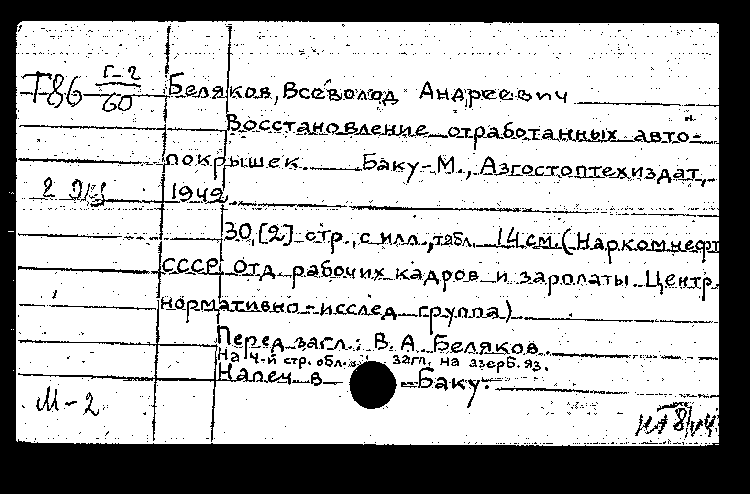 Т86 Г-2/60 Беляков, Всеволод Андреевич
Восстановление отработанных авто-
покрышек. Баку-М., Азгостоптехиздат,
2 экз 1942.
30,[2] стр., с илл., табл. 14 см. (Наркомнефт
СССР. Отд. рабочих кадров и зарплаты. Центр.
нормативно-исслед. группа)
Перед загл.: В. А. Беляков.
На 4-й стр. обл. загл. на азерб. яз.
Напеч. в Баку.
М-2